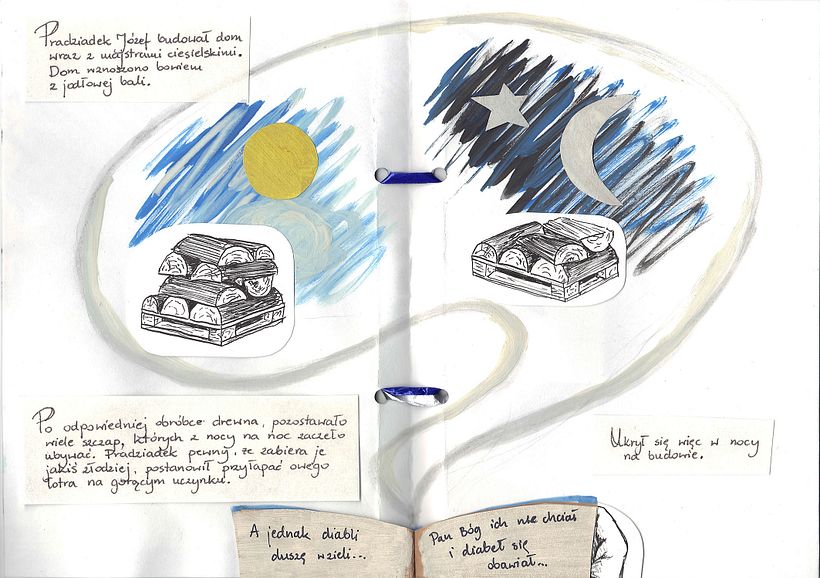 Pradziadek Józef budował dom
wraz z majstrami ciesielskimi.
Dom wznoszono bowiem
z jodłowej bali.
Po odpowiedniej obróbce drewna, pozostawało
wiele szczap, których z nocy na noc zaczęło
ubywać. Pradziadek pewny, że zabiera je
jakiś złodziej, postanowił przyłapać owego
łotra na gorącym uczynku.
Ukrył się więc w nocy
na budowie.
A jednak diabli
duszę wzieli...
Pan Bóg ich nie chciał
i diabeł się
obawiał...